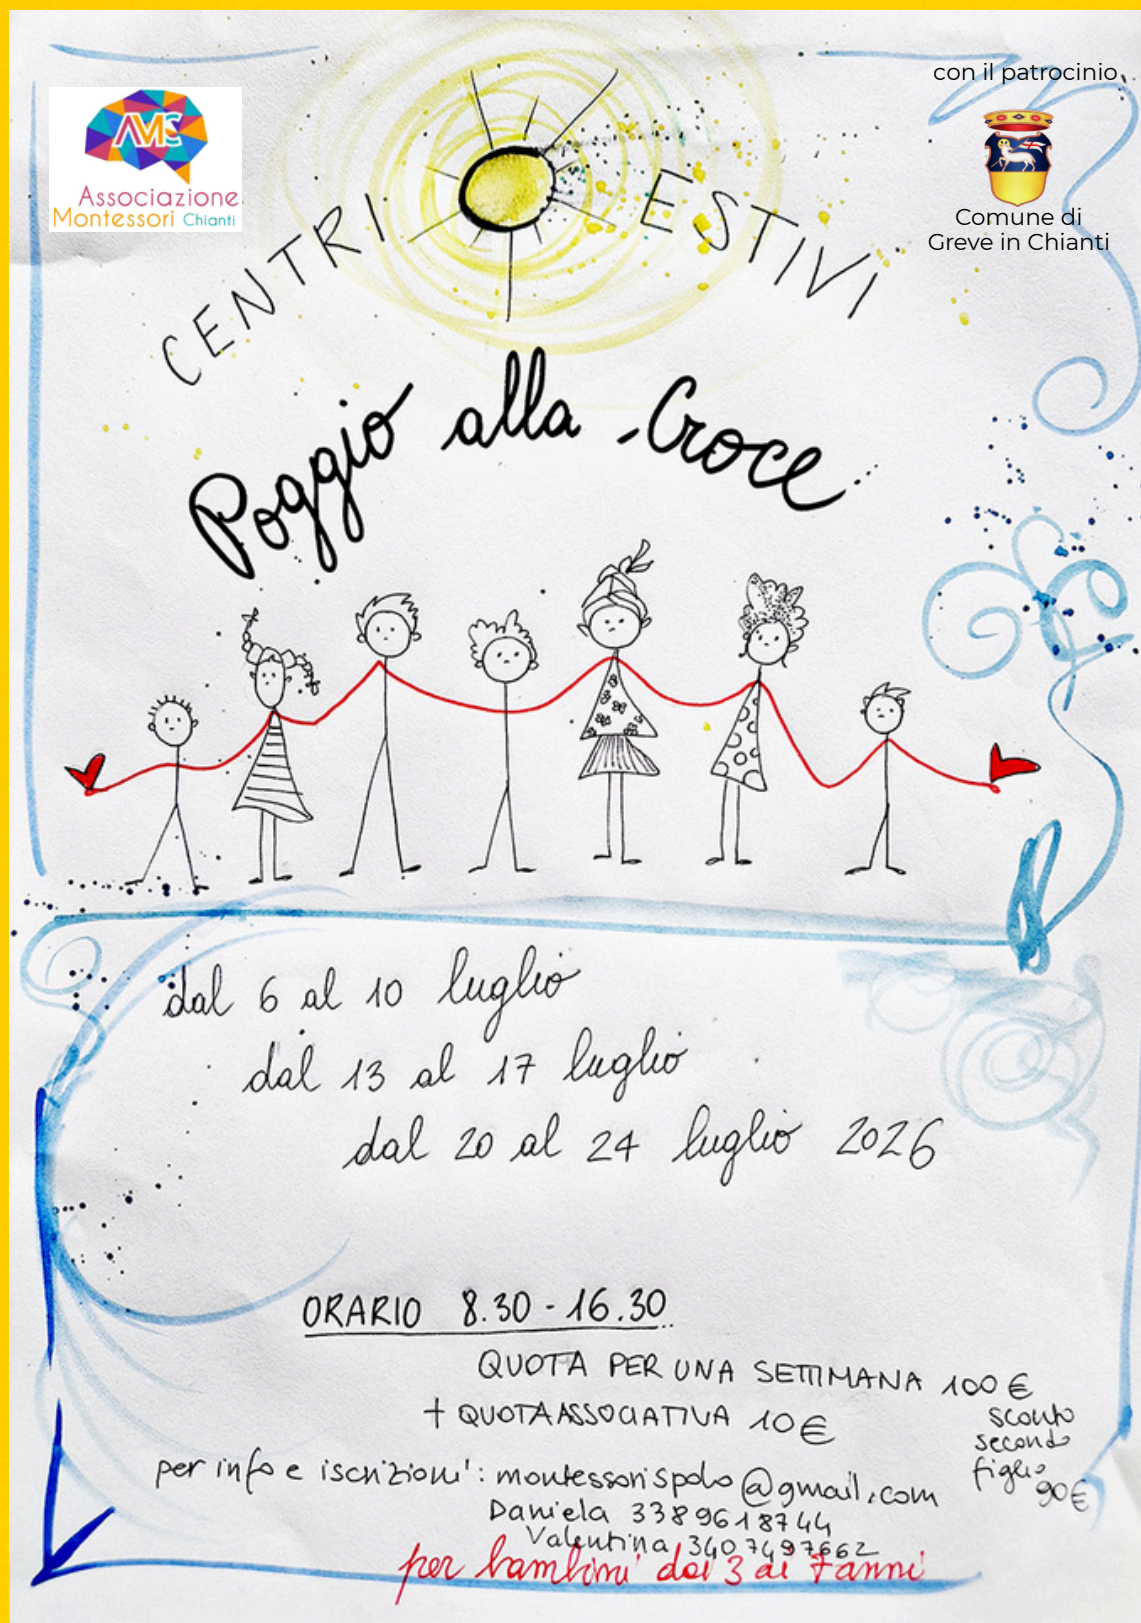 con il patrocinio
AMC
Associazione
Montessori Chianti
Comune di
Greve in Chianti
CENTRI ESTIVI
Poggio alla Croce
dal 6 al 10 luglio
dal 13 al 17 luglio
dal 20 al 24 luglio 2026
ORARIO 8.30 - 16.30
QUOTA PER UNA SETTIMANA 100 €
+ QUOTA ASSOCIATIVA 10 €
sconto
secondo
figlio
90 €
per info e iscrizioni: montessorispolo@gmail.com
Daniela 3389618744
Valentina 3407497662
per bambini dai 3 ai 7 anni